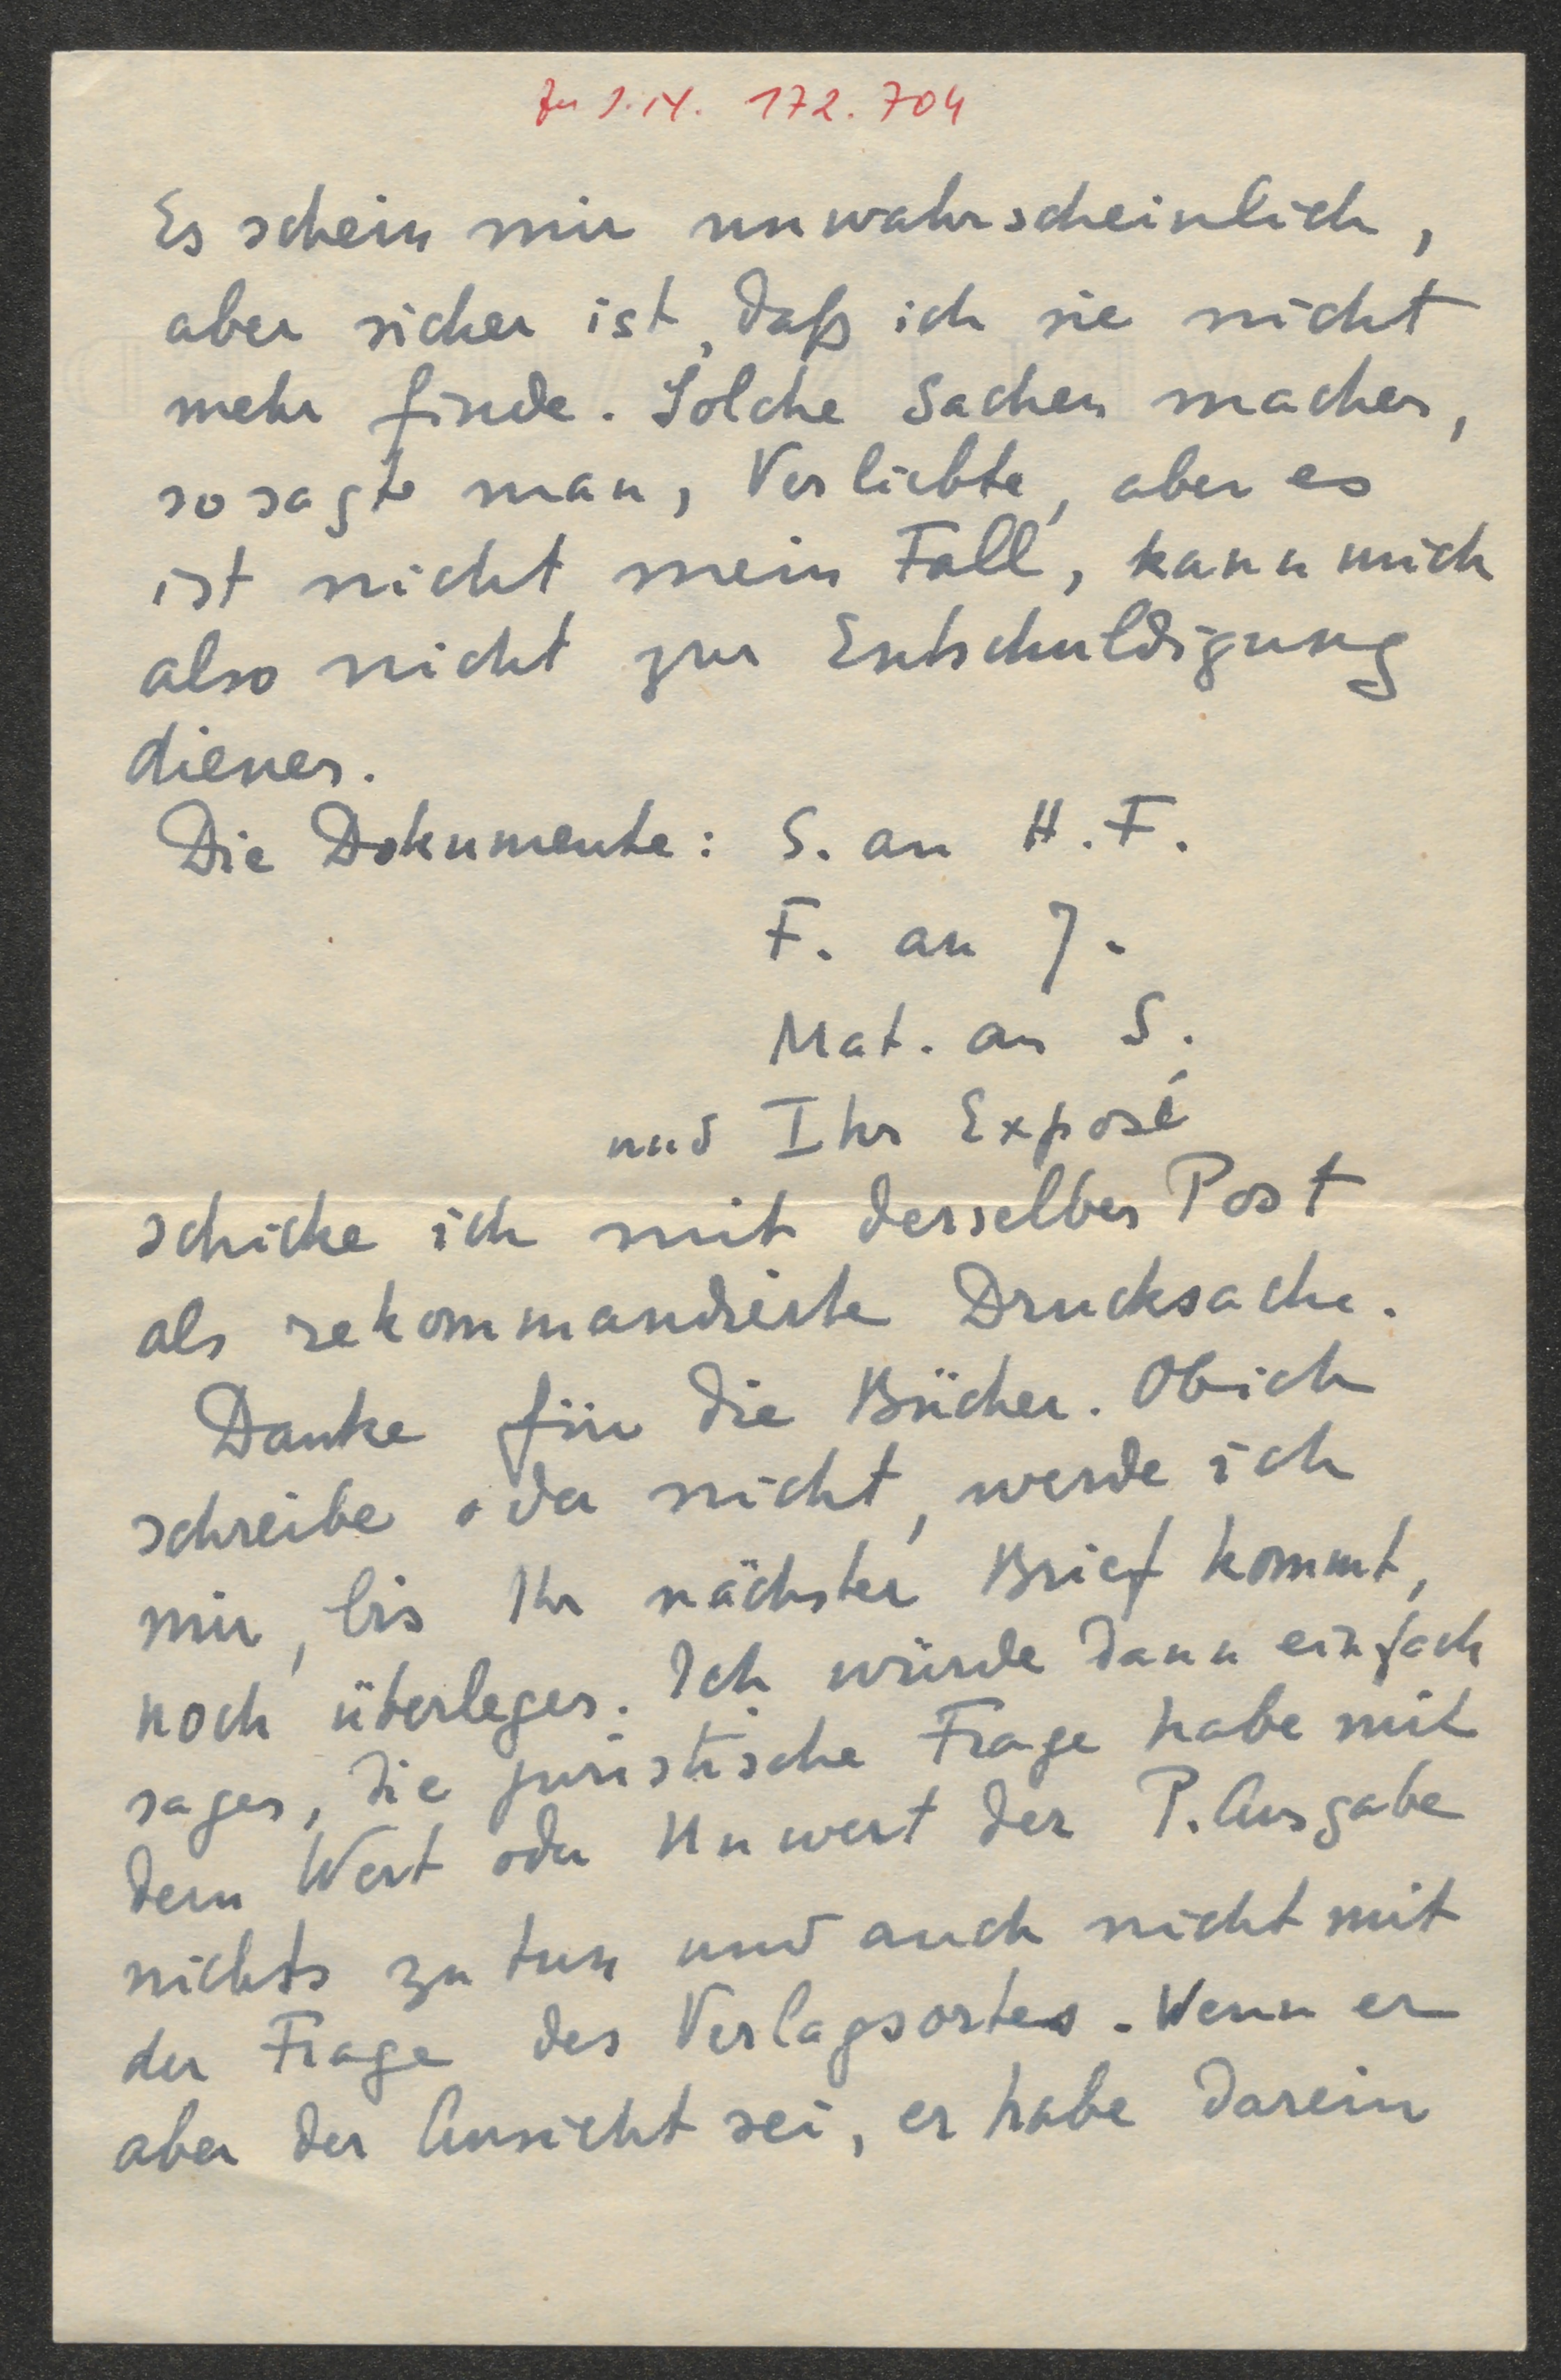 172.704
Es schein mir unwahrscheinlich,
aber sicher ist, daß ich sie nicht
mehr finde. Solche Sachen machen,
so sagte man, Verliebte, aber es
ist nicht mein Fall, kann mich
also nicht zur Entschuldigung
dienen.
Die Dokumente: S. an H. F.
F. an J.
Mat. an S.
und Ihr Exposé
schicke ich mit derselben Post
als rekommandierte Drucksache.
Danke für die Bücher. Ob ich
schreibe oder nicht, werde ich
mir, bis Ihr nächster Brief kommt,
noch überlegen. Ich würde dann einfach
sagen, die juristische Frage habe mit
dem Wert oder Unwert der P. Ausgabe
nichts zu tun und auch nicht mit
der Frage des Verlagsortes. Wenn er
aber der Ansicht sei, er habe darein